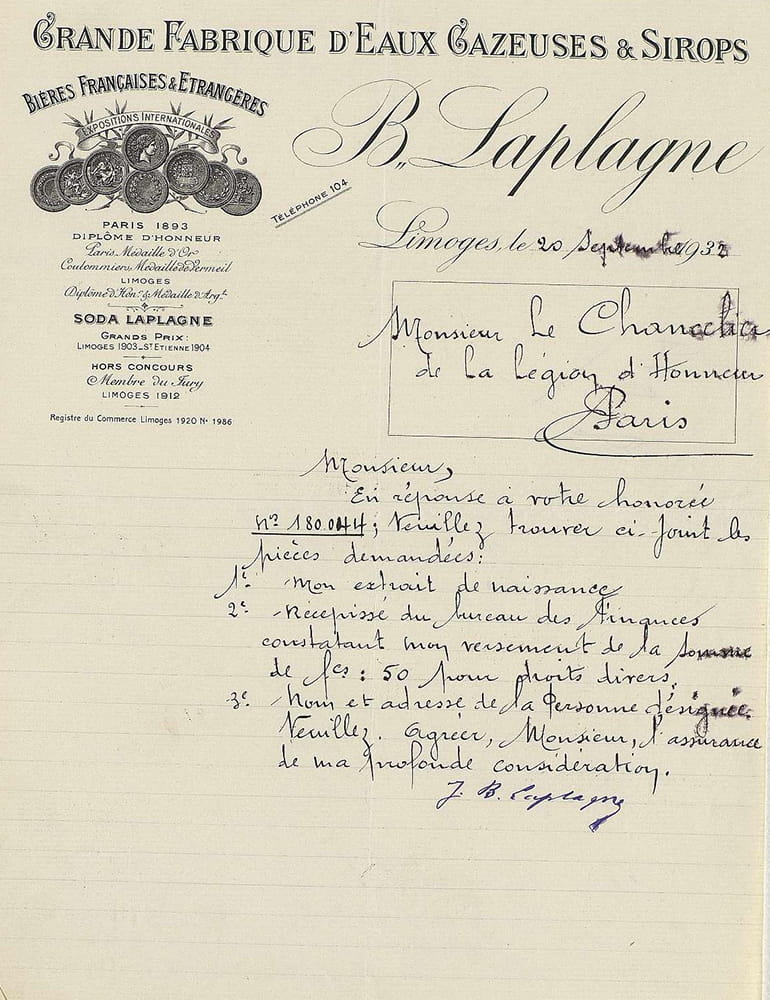 GRANDE FABRIQUE D'EAUX GAZEUSES & SIROPS
BIÈRES FRANÇAISES & ETRANGÈRES
EXPOSITIONS INTERNATIONALES
B. Laplagne
TÉLÉPHONE 104
PARIS 1893
DIPLÔME D'HONNEUR
Paris. Médaille d'Or
Coulommiers, Médaille de Vermeil
LIMOGES
Diplôme d'Hon.r & Médaille d'Arg.t
SODA LAPLAGNE
GRANDS PRIX:
LIMOGES 1903_ST ETIENNE 1904
HORS CONCOURS
Membre du Jury
LIMOGES 1912
Registre du Commerce Limoges 1920 N° 1986
Limoges, le 20 Septembre 1932
Monsieur Le Chancelier
de la Légion d'Honneur
Paris
Monsieur,
En réponse à votre honorée
N° 180.044; Veuillez trouver ci-Joint les
pièces demandées:
1° Mon extrait de naissance
2° Récépissé du bureau des Finances
constatant mon versement de la somme
de fcs: 50 pour droits divers.
3° Nom et adresse de la Personne désignée.
Veuillez. Agréer, Monsieur, l'assurance
de ma profonde considération.
J. B. Laplagne